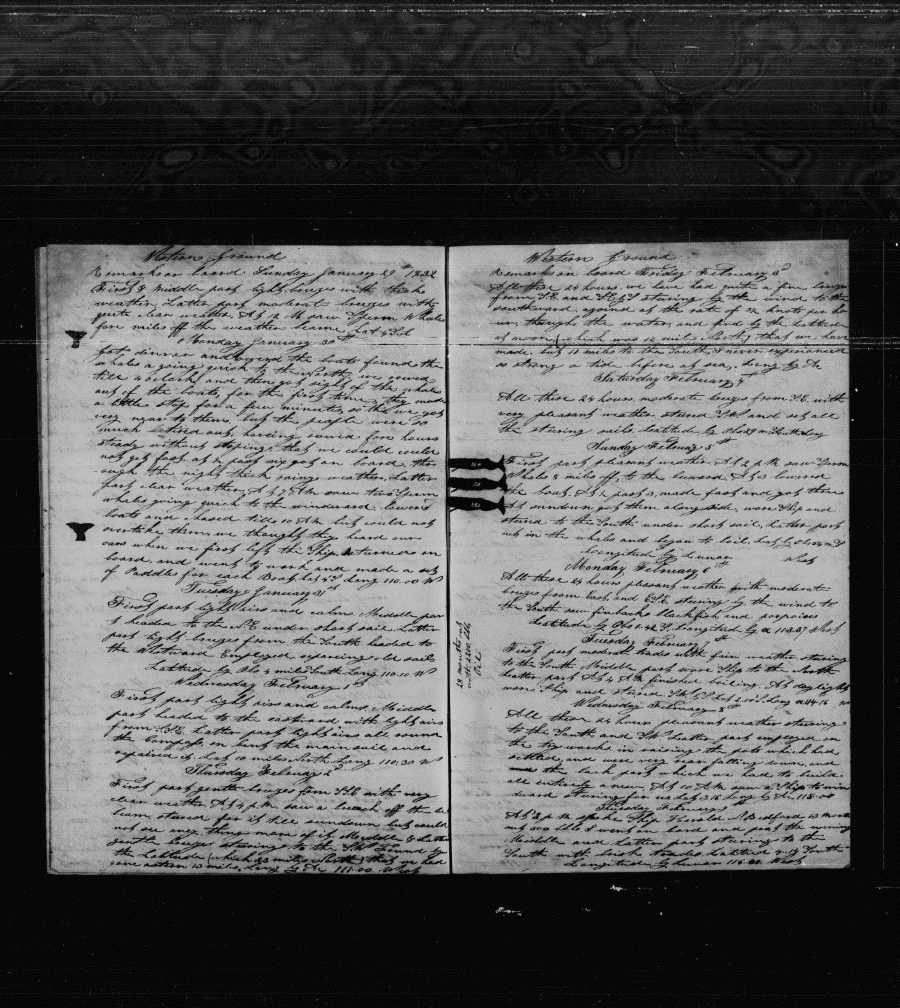 Western Ground
Remarks on board Sunday January 29th 1832
First & Middle part light breezes with thick
weather. Latter part moderate breezes with
quite clear weather. At 12 M saw Sperm Whales
four miles off the weather beam Lat
Monday January 30th
got dinner and lowered the boats found the
whales a going quick to the North, we rowed
till 4 oclock and then got sight of the whales
out of the boats, for the first time, they made
a little stop for a few minutes, so that we got
very near them, but the people were so
much tired out, having rowed four hours
steady without stoping, that we could could
not get fast, at past six got on board, thro
ough the night thick rainy weather. Latter
part clear weather. At 7 AM saw two Sperm
whales going quick to the windward lowered
boats and chased till 10 AM but could not
overtake them, we thought they heard our
oars when we first left the Ship, returned on
board, and went to work and made a set
of Paddles for each Boat Lat Long 110.00 W
Tuesday January 31st
First part light airs and calm, Middle par
t headed to the NE under short sail Latter
part light breezes from the South headed to
the Westward Employed repairing old sails
Latitude by Obs 4 miles South Long 110.10 W
Wednesday February 1st
First part light airs and calms, Middle
part headed to the eastward with light airs
from Latter part light airs all round
the Compass, on bent the main sail and
repaired it. Lat 10 miles North Long 110.30 W
Thursday February 2d
First part gentle breezes from SE with very
clear weather At 4 PM saw a breach off the le
beam steered for it till sundown but could
not see any thing more of it Middle & Latter
gentle breeze steering to the Found by
the Latitude (which 23 miles North) that we had
gone astern 13 miles, Long by 111.00 West
28 months out
with
Oil
Western Ground
Remarks on board Friday February 3d
All these 24 hours we have had quite a fine breeze
from SE and steering by the wind to the
southward, against at the rate of knots per ho
ur, through the water, and find by the Latitude
at noon (which was 12 miles North) that we have
made, but 11 miles to the South, I never experienced
so strong a tide before at sea,
Saturday February 4th
All these 24 hours moderate breezes from SE with
very pleasant weather. steered SW and set all
the stearing sails Latitude by
Sunday February 5th
First part pleasant weather. At 2 PM saw Sperm
Whales 8 miles off to the leeward. At 3 lowered
the boats, At past 3, made fast and got three
At sundown got them along side, wore Ship and
steered to the South under short sail, Latter part
cut in the whales and began to boil. Lat by Obs
Longitude by lunar West
Monday February 6th
All these 24 hours pleasant weather with moderate
breezes from East and ESE steering by the wind to
the South saw finbacks blackfish and porpoises
Latitude by Obs Longitude by 113.37 West
Tuesday February 7th
First part moderate trades with fair weather steering
to the South Middle part wore Ship to the North
Latter part At 4 AM finished boiling, At daylight
wore Ship and steered Long 114.16 W
Wednesday February 8th
All these 24 hours pleasant weather steering
to the South and SW Latter part employed on
the try works in raising the pots which had
settled, and were very near falling down, and
the back part which we had to build
all entirely anew. At 10 AM saw a Ship to win
dward steering for us Lat 3.16 Long by 115.00
Thursday February 9th
At 2 PM spoke Ship Herald N Bedford 13 months
out 500 bbls I went on board and past the evening
Middle and Latter part steering to the
South with brisk trades Latitude South
Longitude by Lunar 116.00 West